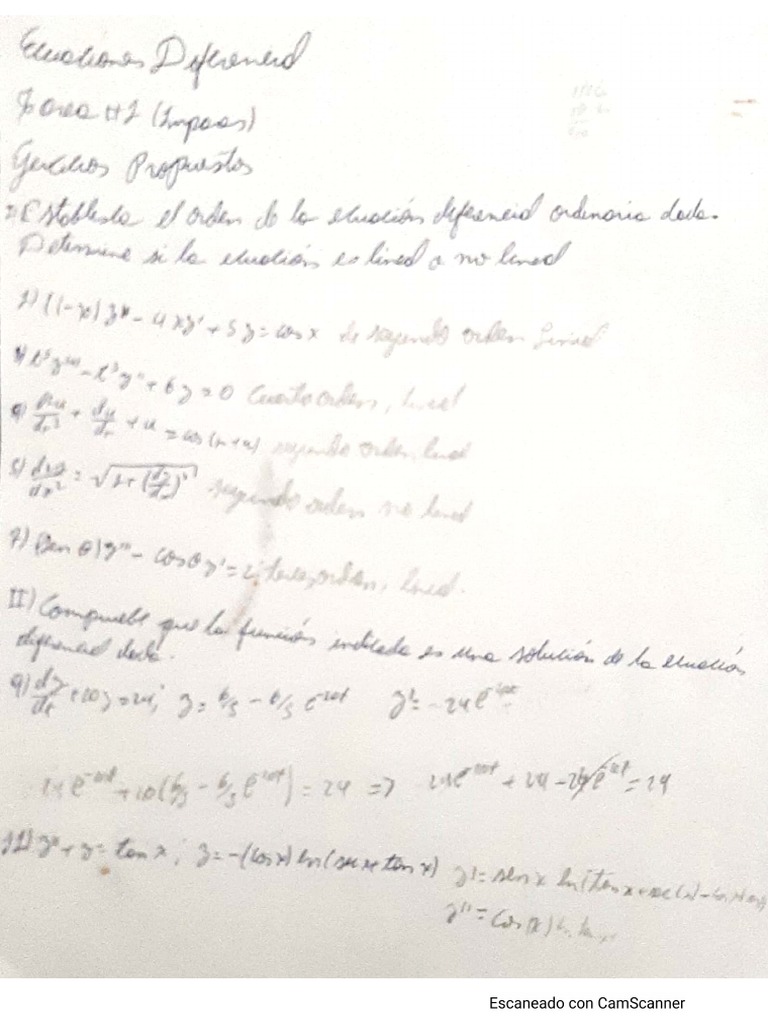 Ecuaciones Diferencial
Tarea #1 (Impares)
Ejercicios Propuestos
I) Establezca el orden de la ecuación diferencial ordinaria dada.
Determine si la ecuación es lineal o no lineal
1) (1-x)y'' - 4xy' + 5y = cos x segundo orden lineal
- t³y'' + 6y = 0 Cuarto orden, lineal
+ u = cos(r+u) segundo orden, lineal
5) d²y/dx² = √1+(dy/dx)² segundo orden no lineal
7) (sen θ)y''' - cos θ y' = 2; tercer orden, lineal.
II) Compruebe que la función indicada es una solución de la ecuación
diferencial dada.
9) dy/dt + 20y = 24; y = 6/5 - 6/5 e^-20t y' = 24e^-20t
24e^-20t + 20(6/5 - 6/5 e^-20t) = 24 => 24e^-20t + 24 - 24e^-20t = 24
11) y'' + y = tan x; y = -(cos x) ln(sec x + tan x) y' = sen x ln(tan x + sec(x)
y'' = cos(x) ln
Escaneado con CamScanner